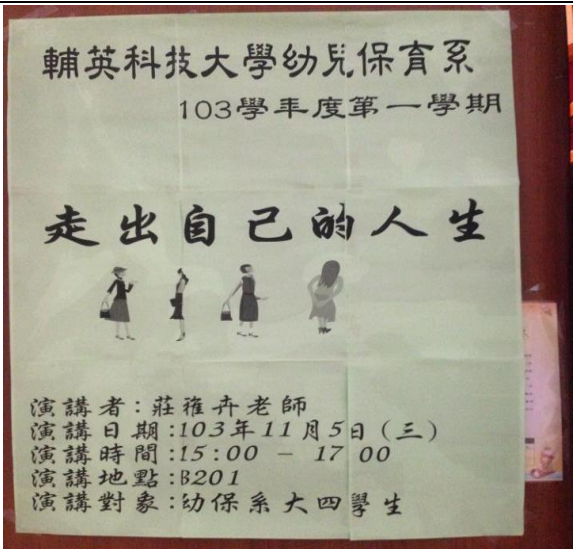 輔英科技大學幼兒保育系
103學年度第一學期
走出自己的人生
演講者:莊雅卉老師
演講日期:103年11月5日(三)
演講時間:15:00 - 17 00
演講地點:B201
演講對象:幼保系大四學生